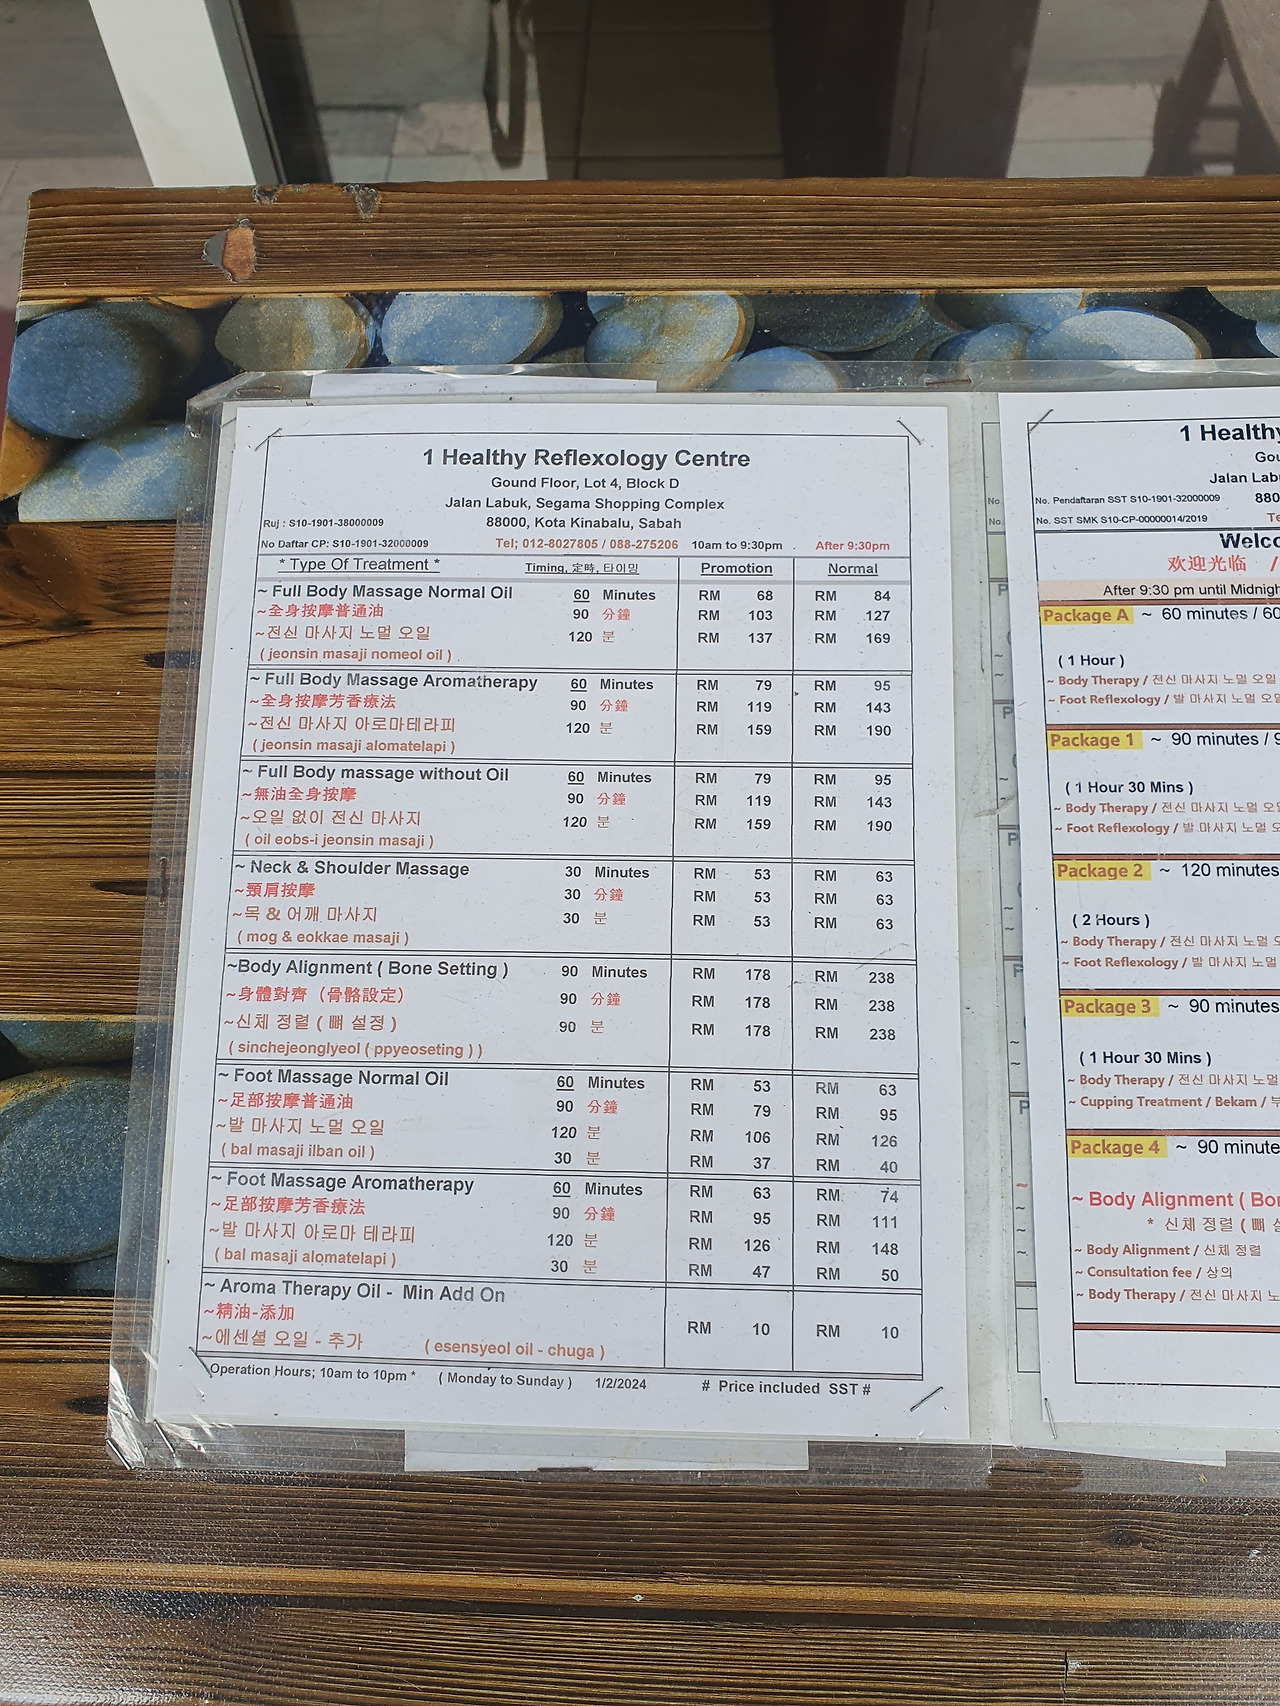 1 Healthy Reflexology Centre
Gound Floor, Lot 4, Block D
Jalan Labuk, Segama Shopping Complex
Ruj : S10-1901-38000009 88000, Kota Kinabalu, Sabah
No Daftar CP: S10-1901-32000009 Tel; 012-8027805 / 088-275206 10am to 9:30pm After 9:30pm
* Type Of Treatment * Timing, 定時, 타이밍 Promotion Normal
~ Full Body Massage Normal Oil 60 Minutes RM 68 RM 84
~全身按摩普通油 90 分鐘 RM 103 RM 127
~전신 마사지 노멀 오일 120 분 RM 137 RM 169
( jeonsin masaji nomeol oil )
~ Full Body Massage Aromatherapy 60 Minutes RM 79 RM 95
~全身按摩芳香療法 90 分鐘 RM 119 RM 143
~전신 마사지 아로마테라피 120 분 RM 159 RM 190
( jeonsin masaji alomatelapi )
~ Full Body massage without Oil 60 Minutes RM 79 RM 95
~無油全身按摩 90 分鐘 RM 119 RM 143
~오일 없이 전신 마사지 120 분 RM 159 RM 190
( oil eobs-i jeonsin masaji )
~ Neck & Shoulder Massage 30 Minutes RM 53 RM 63
~頸肩按摩 30 分鐘 RM 53 RM 63
~목 & 어깨 마사지 30 분 RM 53 RM 63
( mog & eokkae masaji )
~Body Alignment ( Bone Setting ) 90 Minutes RM 178 RM 238
~身體對齊（骨骼設定） 90 分鐘 RM 178 RM 238
~신체 정렬 ( 뼈 설정 ) 90 분 RM 178 RM 238
( sinchejeonglyeol ( ppyeoseting ) )
~ Foot Massage Normal Oil 60 Minutes RM 53 RM 63
~足部按摩普通油 90 分鐘 RM 79 RM 95
~발 마사지 노멀 오일 120 분 RM 106 RM 126
( bal masaji ilban oil ) 30 분 RM 37 RM 40
~ Foot Massage Aromatherapy 60 Minutes RM 63 RM 74
~足部按摩芳香療法 90 分鐘 RM 95 RM 111
~발 마사지 아로마 테라피 120 분 RM 126 RM 148
( bal masaji alomatelapi ) 30 분 RM 47 RM 50
~ Aroma Therapy Oil - Min Add On
~精油-添加 RM 10 RM 10
~에센셜 오일 - 추가 ( esensyeol oil - chuga )
Operation Hours; 10am to 10pm * ( Monday to Sunday ) 1/2/2024 # Price included SST #
1 Healthy
Jalan
No. Pendaftaran SST S10-1901-32000009 880
No. SST SMK S10-CP-00000014/2019
欢迎光临 /
After 9:30 pm until
Package A ~ 60 minutes / 60
( 1 Hour )
~ Body Therapy / 전신 마사지 노멀 오일
~ Foot Reflexology / 발 마사지 노멀
Package 1 ~ 90 minutes / 9
( 1 Hour 30 Mins )
~ Body Therapy / 전신 마사지 노멀
~ Foot Reflexology / 발 마사지 노멀
Package 2 ~ 120 minutes
( 2 Hours )
~ Body Therapy / 전신 마사지 노멀
~ Foot Reflexology / 발 마사지 노멀
Package 3 ~ 90 minutes
( 1 Hour 30 Mins )
~ Body Therapy / 전신 마사지 노멀
~ Cupping Treatment / Bekam / 부
Package 4 ~ 90 minute
~ Body Alignment (
* 신체 정렬 ( 뼈
~ Body Alignment / 신체 정렬
~ Consultation fee / 상의
~ Body Therapy / 전신 마사지